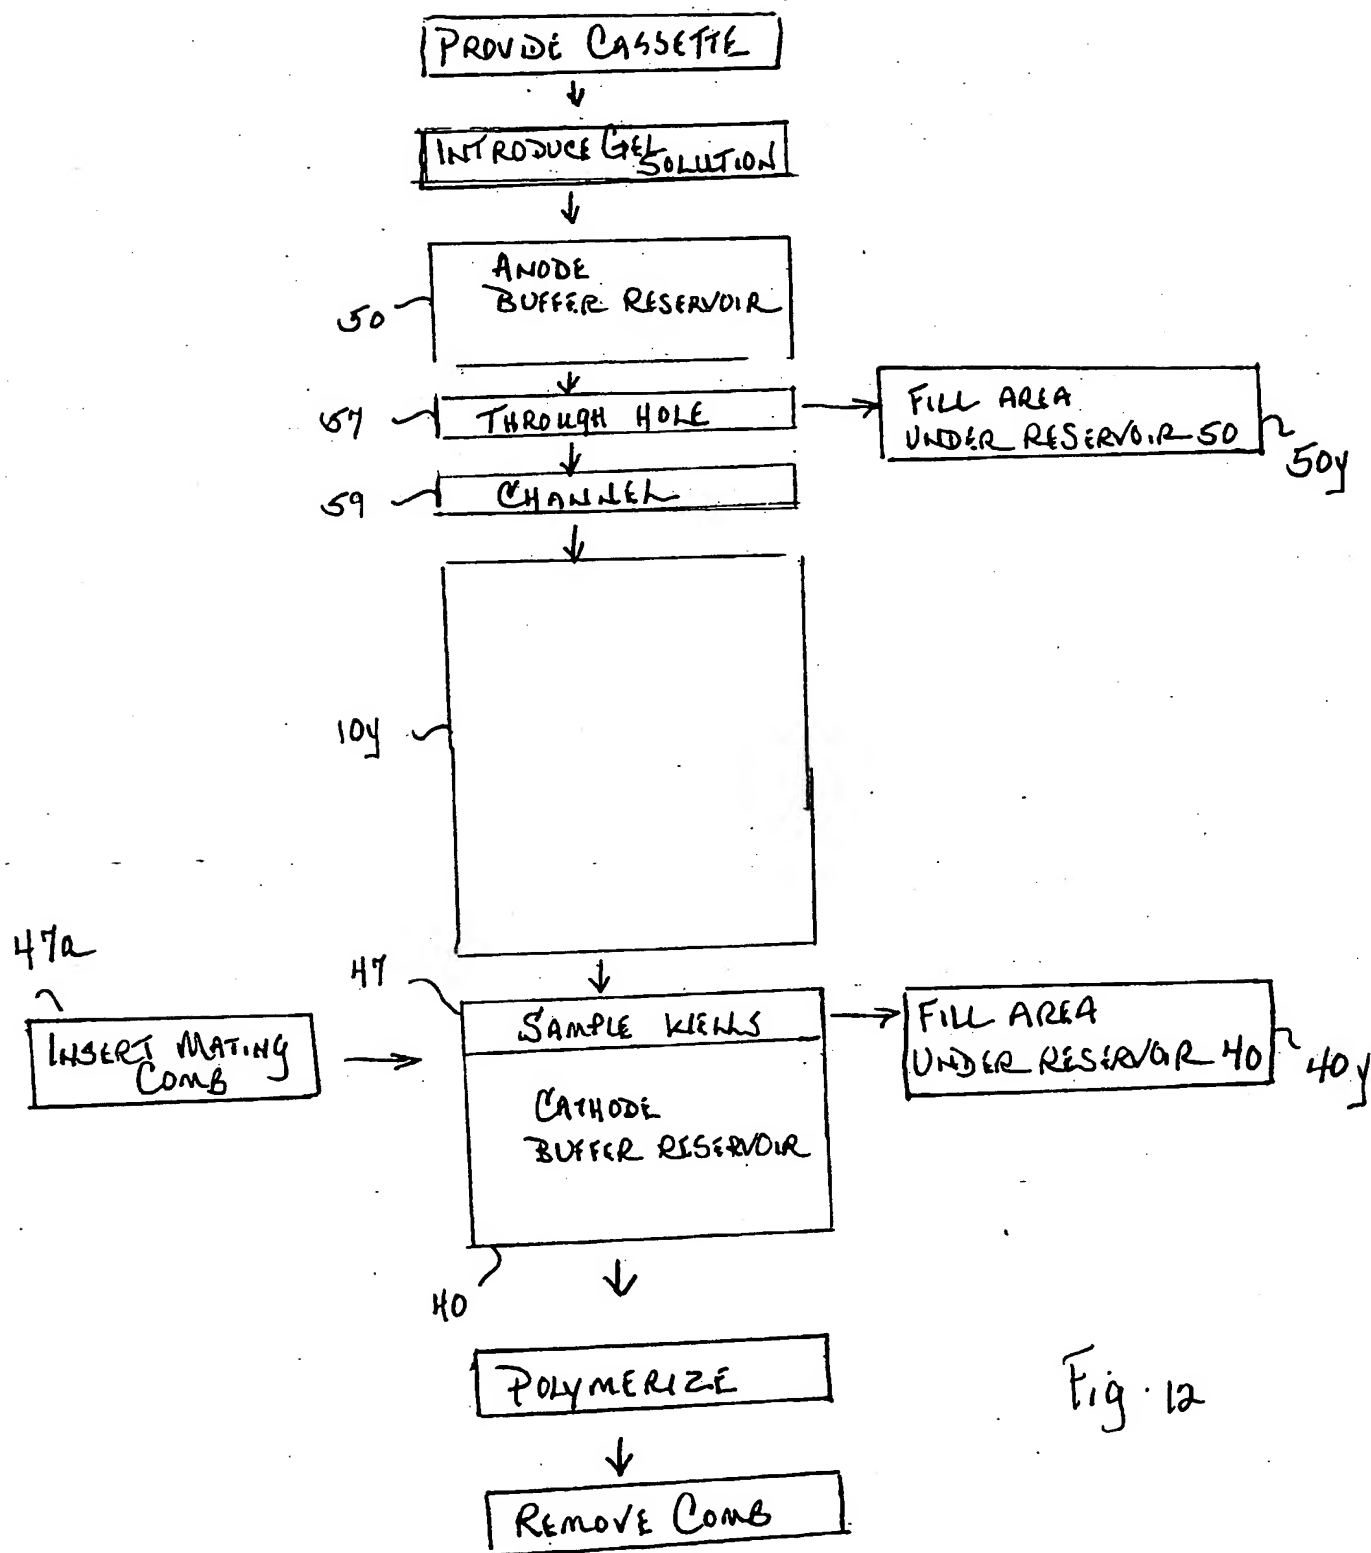 PROVIDE CASSETTE
INTRODUCE GEL
SOLUTION
ANODE
BUFFER RESERVOIR
50
57
THROUGH HOLE
FILL AREA
UNDER RESERVOIR 50
50y
59
CHANNEL
10y
47a
47
INSERT MATING
COMB
SAMPLE WELLS
FILL AREA
UNDER RESERVOIR 40
40y
CATHODE
BUFFER RESERVOIR
40
POLYMERIZE
Fig. 12
REMOVE COMB